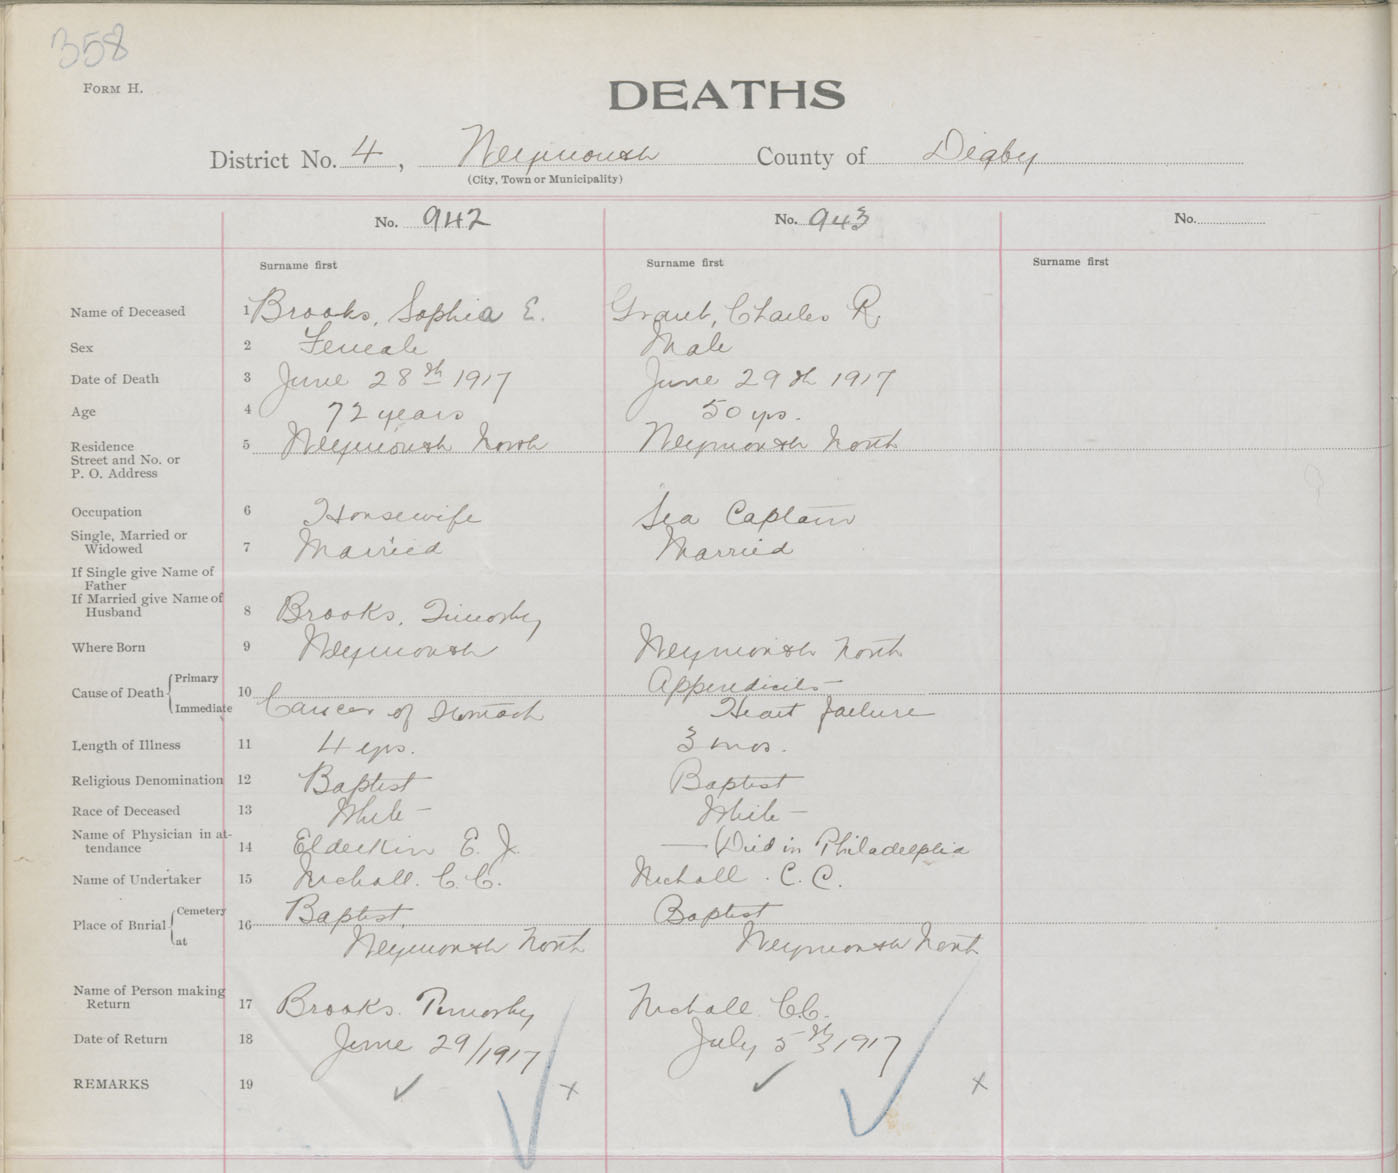 358
FORM H.
DEATHS
District No. 4, Weymouth County of Digby
(City, Town or Municipality)
No. 942 No. 943 No.
Surname first Surname first Surname first
Name of Deceased 1 Brooks, Sophia E. Grant, Charles R.
Sex 2 Female Male
Date of Death 3 June 28th 1917 June 29th 1917
Age 4 72 years 50 yrs.
Residence 5 Weymouth North Weymouth North
Street and No. or
P. O. Address
Occupation 6 Housewife Sea Captain
Single, Married or
Widowed 7 Married Married
If Single give Name of
Father
If Married give Name of
Husband 8 Brooks, Timothy
Where Born 9 Weymouth Weymouth North
Cause of Death Primary 10 Appendicitis
Immediate Cancer of Stomach Heart failure
Length of Illness 11 4 yrs. 3 mos.
Religious Denomination 12 Baptist Baptist
Race of Deceased 13 White White
Name of Physician in at-
tendance 14 Elderkin E. J. — (Died in Philadelphia
Name of Undertaker 15 Nichall. C. C. Nichall. C. C.
Place of Burial Cemetery 16 Baptist, Baptist
at Weymouth North Weymouth North
Name of Person making
Return 17 Brooks. Timothy Nichall. C.C.
Date of Return 18 June 29/1917 July 5th 1917
REMARKS 19 ✓ x ✓ x